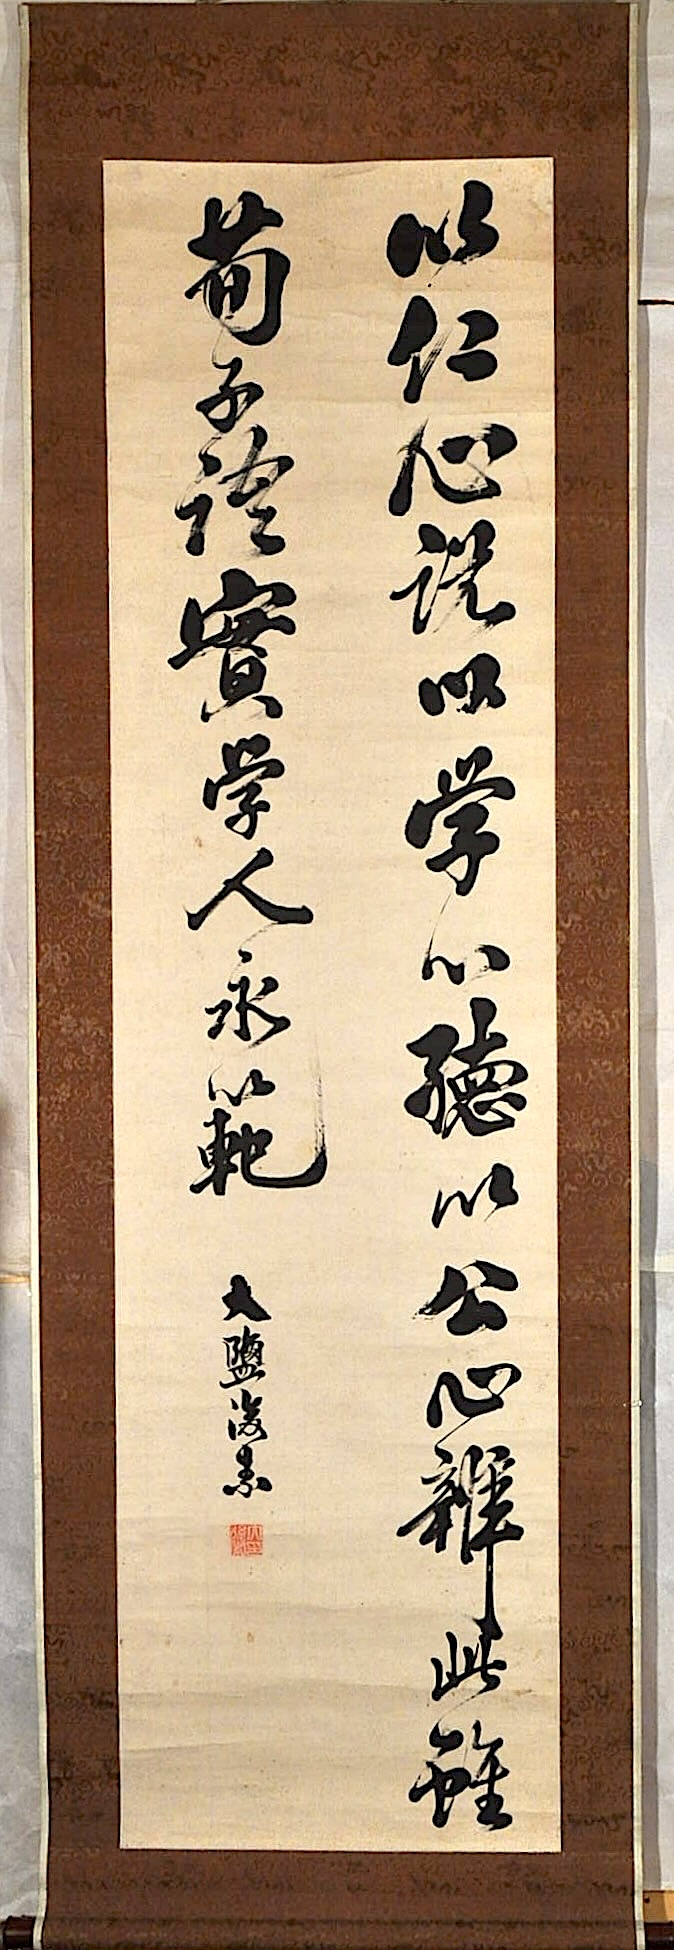 以仁心説以学心聴以公心辨此雖
荀子語實学人永範
大鹽後素